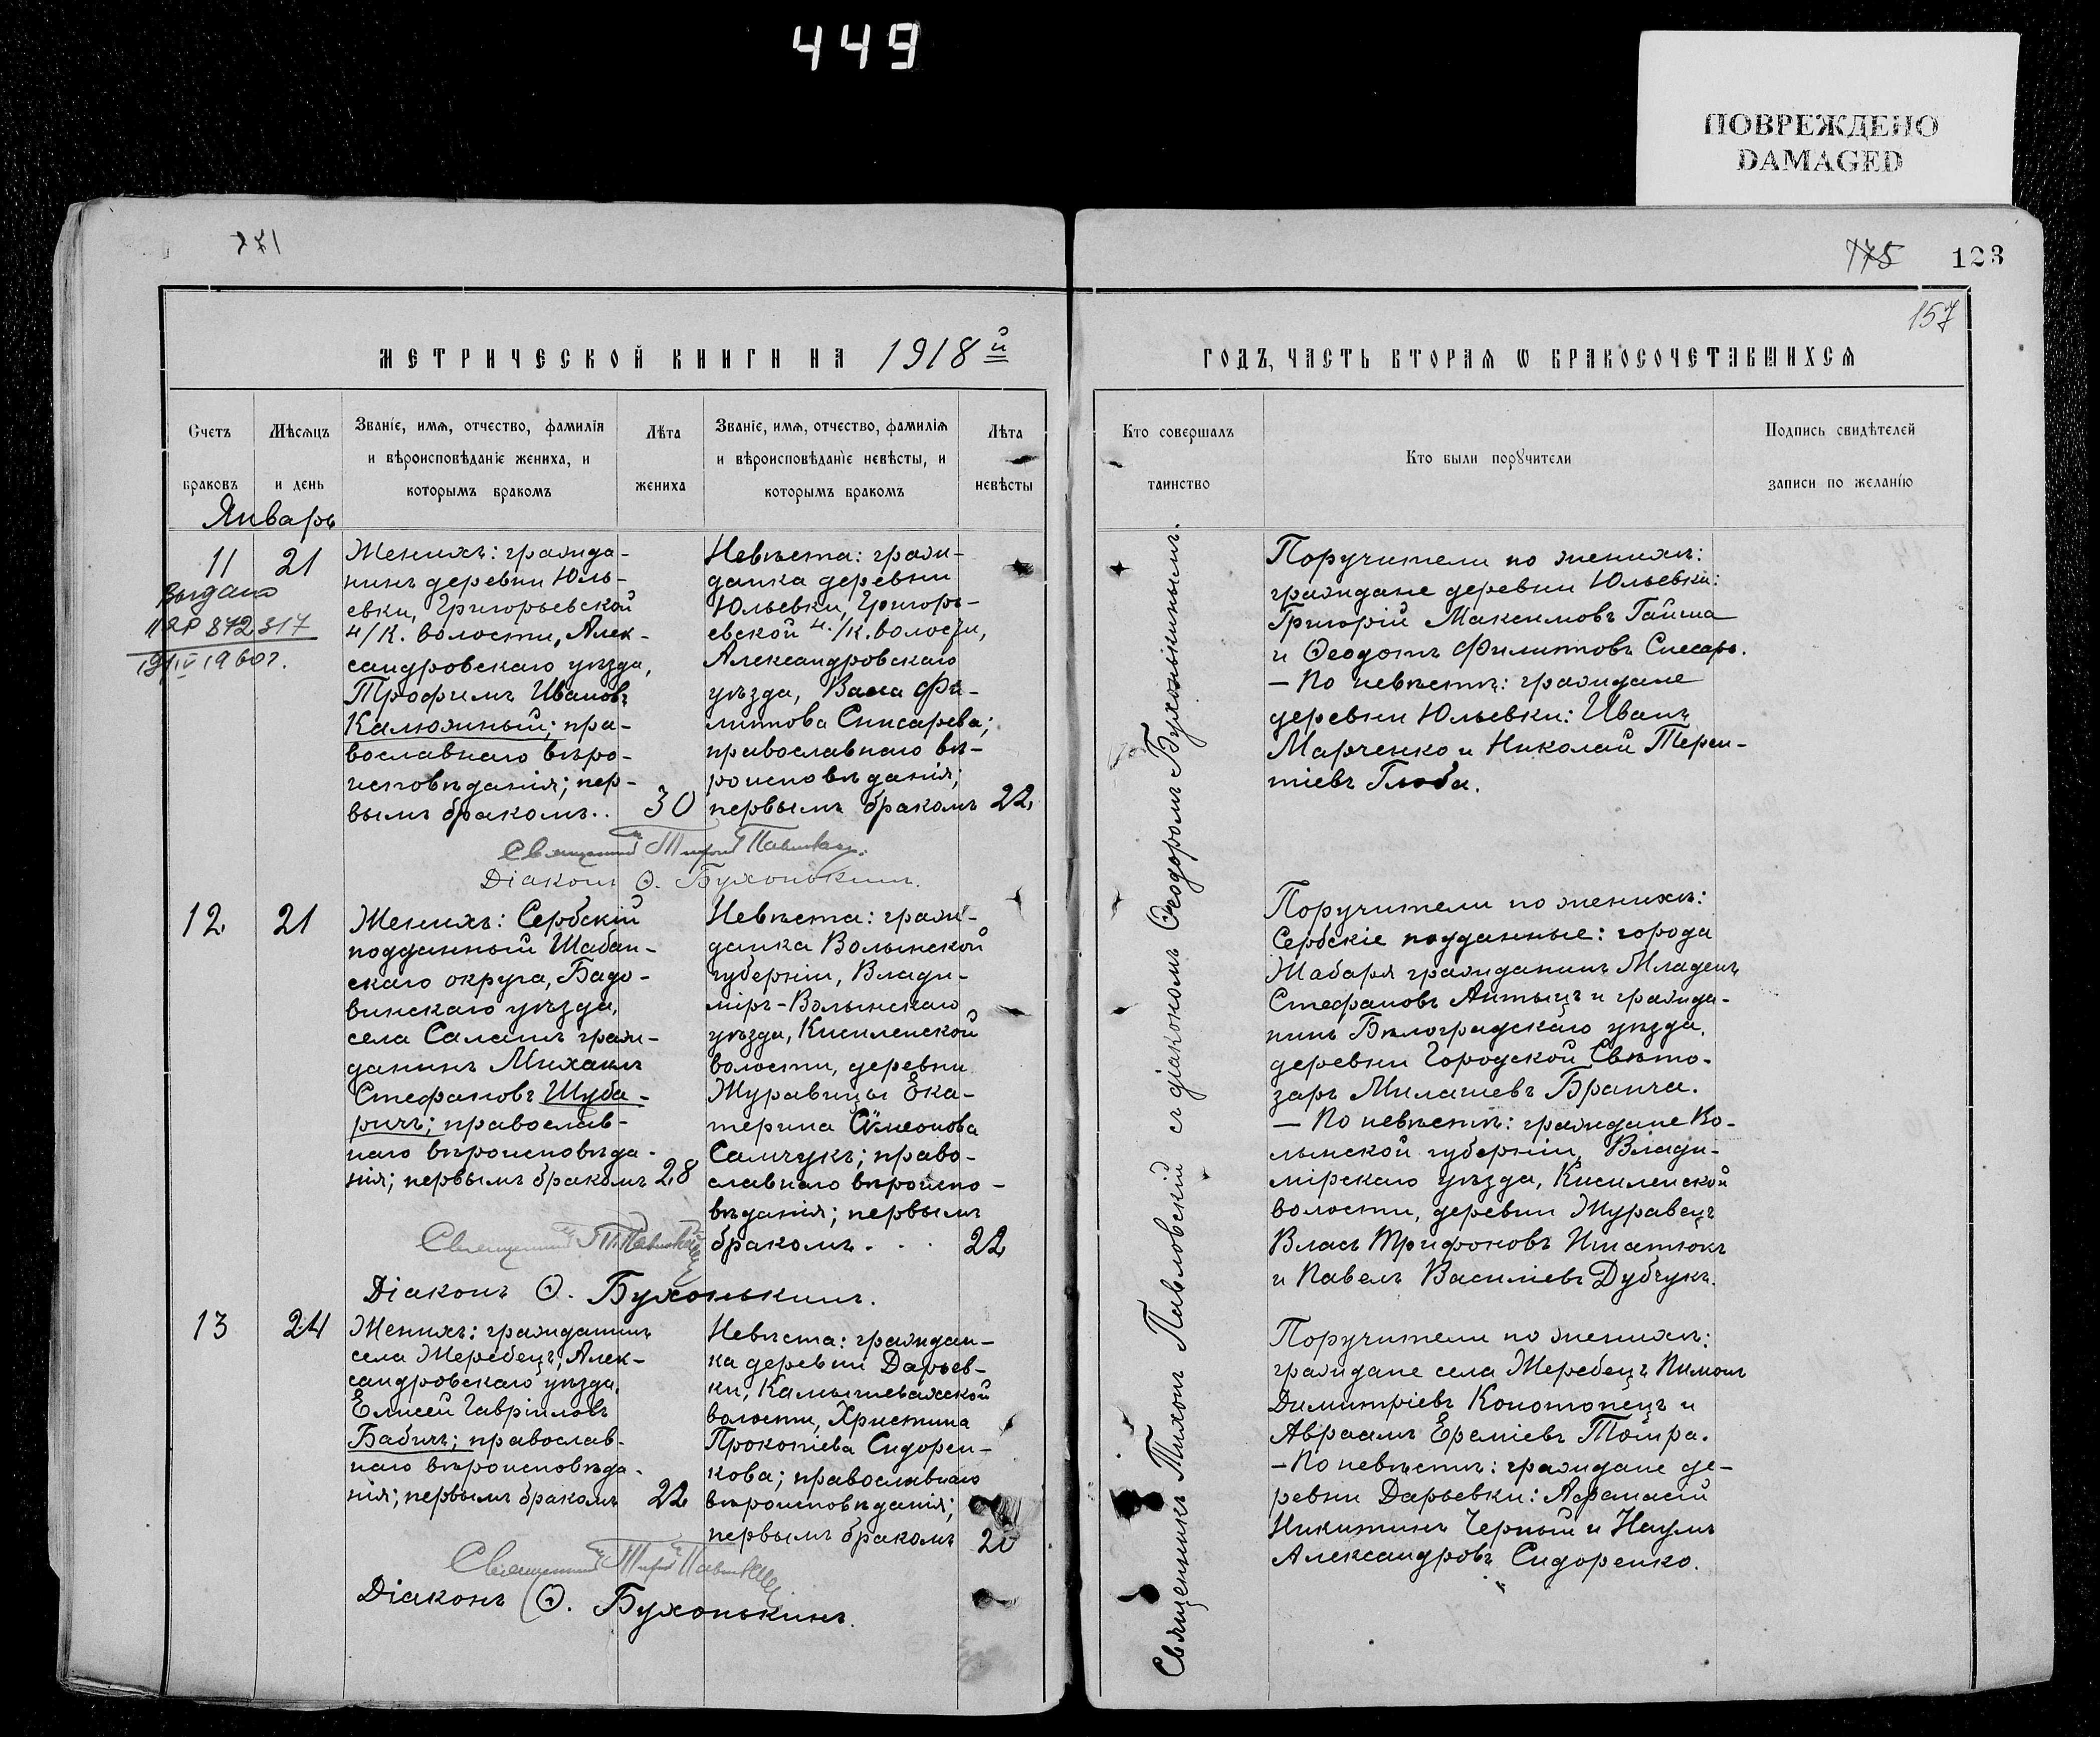 449
ПОВРЕЖДЕНО
DAMAGED
271
175
123
157
МЕТРИЧЕСКОЙ КНИГИ НА 1918й
ГОДЪ, ЧАСТЬ ВТОРАЯ Ѡ БРАКОСОЧЕТАВШИХСЯ
Счетъ
браковъ
Мѣсяцъ
и день
Званіе, имя, отчество, фамилія
и вѣроисповѣданіе жениха, и
которымъ бракомъ
Лѣта
жениха
Званіе, имя, отчество, фамилія
и вѣроисповѣданіе невѣсты, и
которымъ бракомъ
Лѣта
невѣсты
Кто совершалъ
таинство
Кто были поручители
Подпись свидѣтелей
записи по желанію
Январь
11
21
Выдано
872317
1960г.
Женихъ: гражда-
нинъ деревни Юль-
евки, Григорьевской
ч/К. волости, Алек-
сандровскаго уѣзда,
Трофимъ Ивановъ
Калюжный; пра-
вославнаго вѣро-
исповѣданія; пер-
вымъ бракомъ..
30
Невѣста: граж-
данка деревни
Юльевки, Григорь-
евской ч./К. волости,
Александровскаго
уѣзда, Васса Фи-
липпова Слисарева;
православнаго вѣ-
роисповѣданія;
первымъ бракомъ
22.
Священникъ Тихонъ Павловскій.
Діаконъ Ѳ. Бухонькинъ.
Поручители по женихѣ:
граждане деревни Юльевки:
Григорій Максимовъ Гайша
и Ѳеодотъ Филипповъ Слесарь.
— По невѣстѣ: граждане
деревни Юльевки: Иванъ
Марченко и Николай Терен-
тіевъ Глоба.
12
21
Женихъ: Сербскій
подданный Шабан-
скаго округа, Бадо-
винскаго уѣзда,
села Салашъ граж-
данинъ Михаилъ
Стефановъ Шуба-
ричъ; православ-
наго вѣроисповѣда-
нія; первымъ бракомъ
28
Невѣста: граж-
данка Волынской
губерніи, Влади-
міръ-Волынскаго
уѣзда, Кисилепской
волости, деревни
Журавицы Ека-
терина Сѵмеонова
Самчукъ; право-
славнаго вѣроиспо-
вѣданія; первымъ
бракомъ. . .
22
Священникъ Т. Павловскій
Діаконъ Ѳ. Бухонькинъ.
Поручители по женихѣ:
Сербскіе подданные: города
Жабаря гражданинъ Младенъ
Стефановъ Антыцъ и гражда-
нинъ Бѣлоградскаго уѣзда,
деревни Городской Свѣто-
заръ Милашевъ Бранча.
— По невѣстѣ: граждане Во-
лынской губерніи, Влади-
мірскаго уѣзда, Кисилепской
волости, деревни Журавецъ
Власъ Трифоновъ Игнатюкъ
и Павелъ Василіевъ Дубчукъ.
13
24
Женихъ: гражданинъ
села Жеребецъ, Алек-
сандровскаго уѣзда,
Елисей Гавріиловъ
Бабичъ; православ-
наго вѣроисповѣда-
нія; первымъ бракомъ
22
Невѣста: граждан-
ка деревни Дарьев-
ки, Камышевахской
волости, Христина
Прокопіева Сидорен-
кова; православнаго
вѣроисповѣданія;
первымъ бракомъ
20
Священникъ Тихонъ Павловскій
Діаконъ Ѳ. Бухонькинъ.
Поручители по женихѣ:
граждане села Жеребецъ Пимонъ
Димитріевъ Конотопецъ и
Авраамъ Ереміевъ
— По невѣстѣ: граждане де-
ревни Дарьевки: Афанасій
Никитинъ Черный и Наумъ
Александровъ Сидоренко.
Священникъ Тихонъ Павловскій съ діакономъ Ѳеодоромъ Бухонькинымъ.